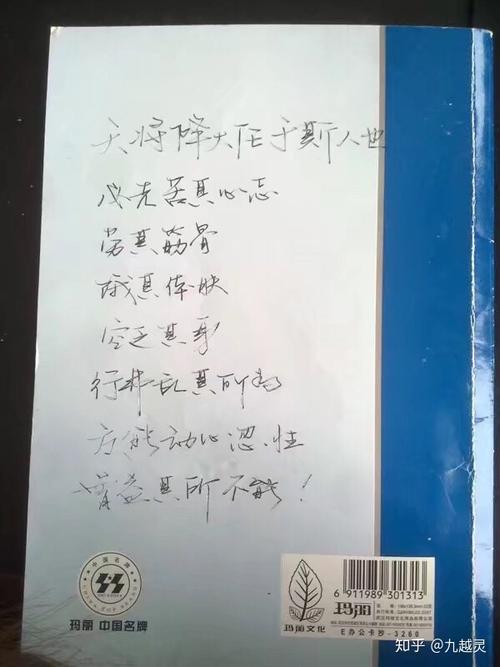 天将降大任于斯人也
必先苦其心志
劳其筋骨
饿其体肤
空乏其身
行拂乱其所为
方能动心忍性
曾益其所不能！
中国名牌
玛丽 中国名牌
玛丽文化
玛丽
6 911989 301313
E办公卡抄-3260
知乎 @九越灵